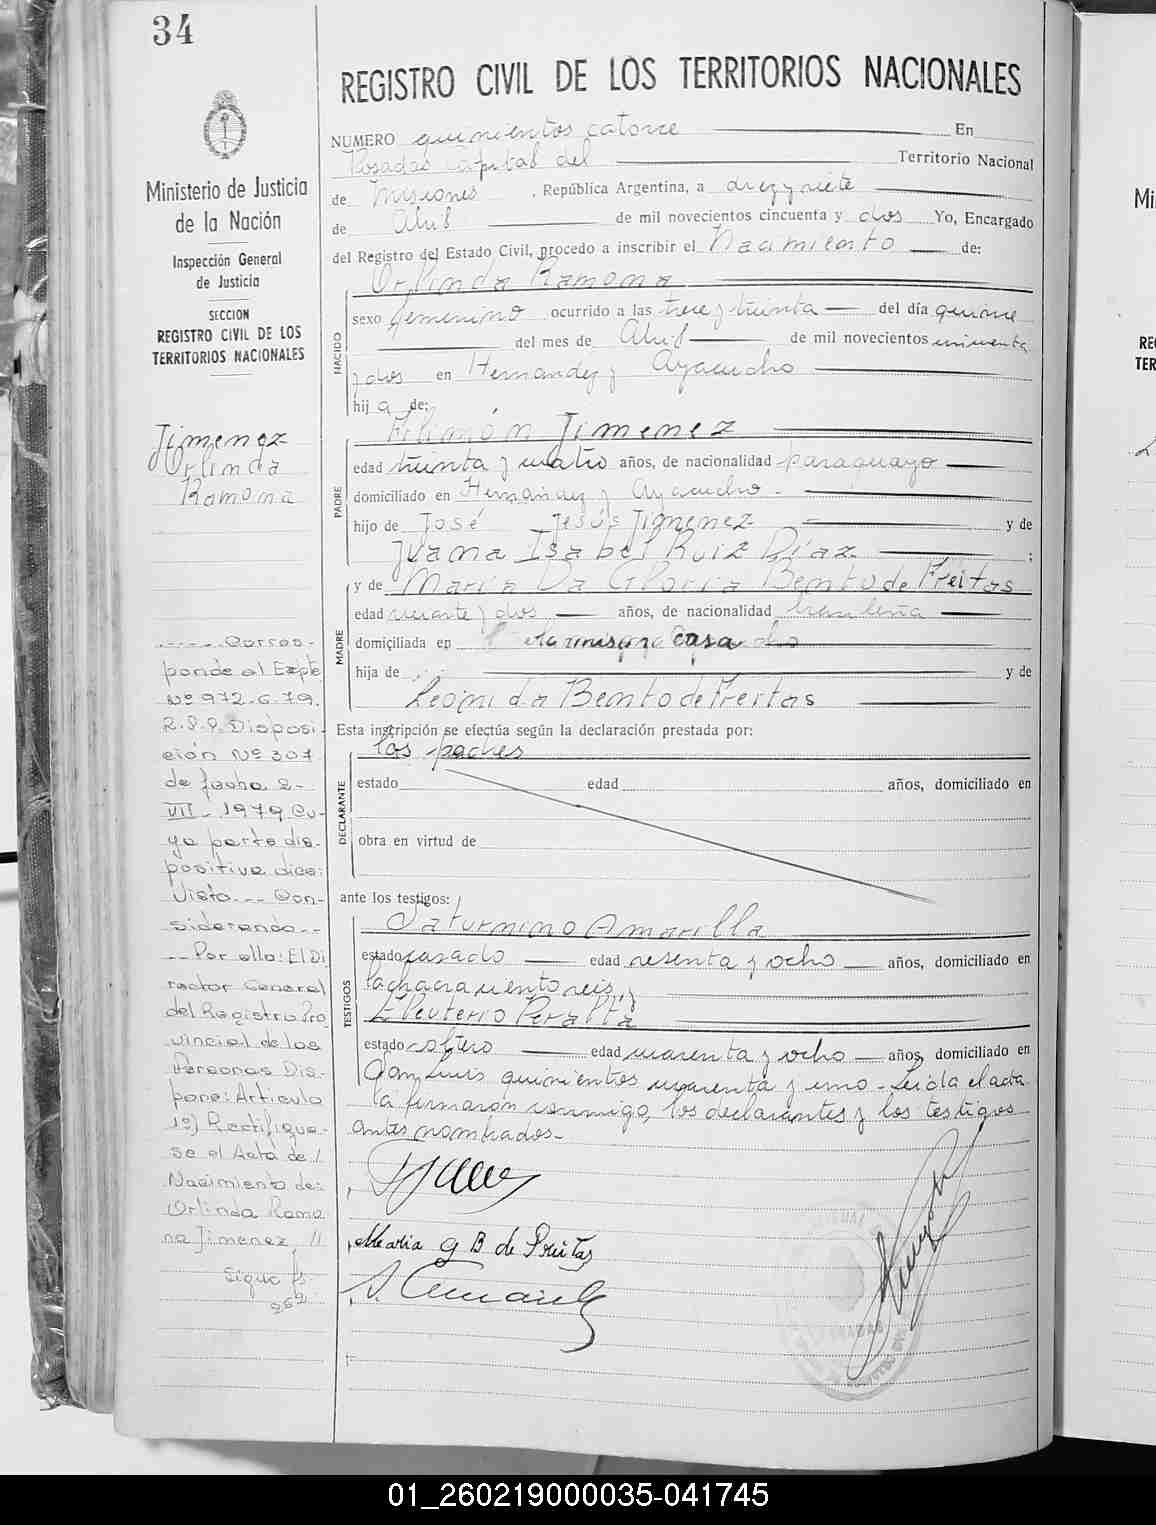 34
Ministerio de Justicia
de la Nación
Inspección General
de Justicia
SECCION
REGISTRO CIVIL DE LOS
TERRITORIOS NACIONALES
Jimenez
Orlinda
Ramona
------ Corres-
ponde al Expte
Nº 972-G-79.
R.P.P. Disposi-
ción Nº 307
de fecha 2-
VII-1979 Cu-
ya parte dis-
positiva dice:
Visto--- Con-
siderando--
--Por ello: El Di
rector General
del Registro Pro
vincial de las
Personas Dis-
pone: Articulo
1º) Rectifique-
se el Acta de
Nacimiento de:
Orlinda Ramo
na Jimenez, //
Sigue fs.
REGISTRO CIVIL DE LOS TERRITORIOS NACIONALES
NUMERO quinientos catorce En
Posadas capital del Territorio Nacional
de Misiones , República Argentina, a diez y siete
de Abril de mil novecientos cincuenta y dos Yo, Encargado
del Registro del Estado Civil, procedo a inscribir el Nacimiento de:
NACIDO
Orlinda Ramona
sexo femenino ocurrido a las trece y treinta del día quince
del mes de Abril de mil novecientos cincuenta
y dos en Hernandez y Ayacucho
hija de:
PADRE
Filimón Jimenez
edad treinta y cuatro años, de nacionalidad paraguayo
domiciliado en Hernandez y Ayacucho -
hijo de José Jesús Jimenez y de
Juana Isabel Ruiz Díaz ;
MADRE
y de Maria Da Gloria Bento de Freitas
edad cuarenta y dos años, de nacionalidad brasileña
domiciliada en la misma casa
hija de y de
Leonida Bento de Freitas
Esta inscripción se efectúa según la declaración prestada por:
DECLARANTE
los padres
estado edad años, domiciliado en
obra en virtud de
ante los testigos:
TESTIGOS
Saturnino Amarilla
estado casado edad sesenta y ocho años, domiciliado en
la chacra ciento seis, y
Eleuterio Peralta
estado soltero edad cuarenta y ocho años, domiciliado en
San Luis quinientos cuarenta y uno - Leida el acta
la firmaron conmigo, los declarantes y los testigos
antes nombrados.-
Maria G B de Freitas
01_260219000035-041745